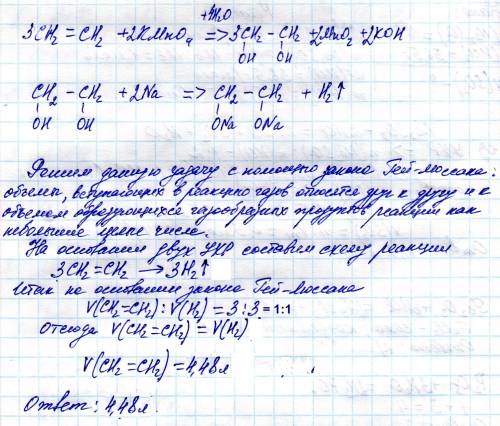 +4H₂O
3CH₂ = CH₂ + 2KMnO₄ => 3CH₂ – CH₂ + 2MnO₂ + 2KOH
OH OH
CH₂ – CH₂ + 2Na => CH₂ – CH₂ + H₂↑
OH OH ONa ONa
Решим данную задачу с помощью закона Гей-Люссака:
объемы, вступающих в реакцию газов относятся друг к другу и к
объемом образующихся газообразных продуктов реакции как
небольшие целые числа.
На основании двух УХР составим схему реакции
3CH₂ = CH₂ → 3H₂↑
Итак на основании закона Гей-Люссака
V(CH₂=CH₂) : V(H₂) = 3 : 3 = 1:1
Отсюда V(CH₂=CH₂) = V(H₂)
V(CH₂=CH₂) = 4,48л
Ответ: 4,48л.